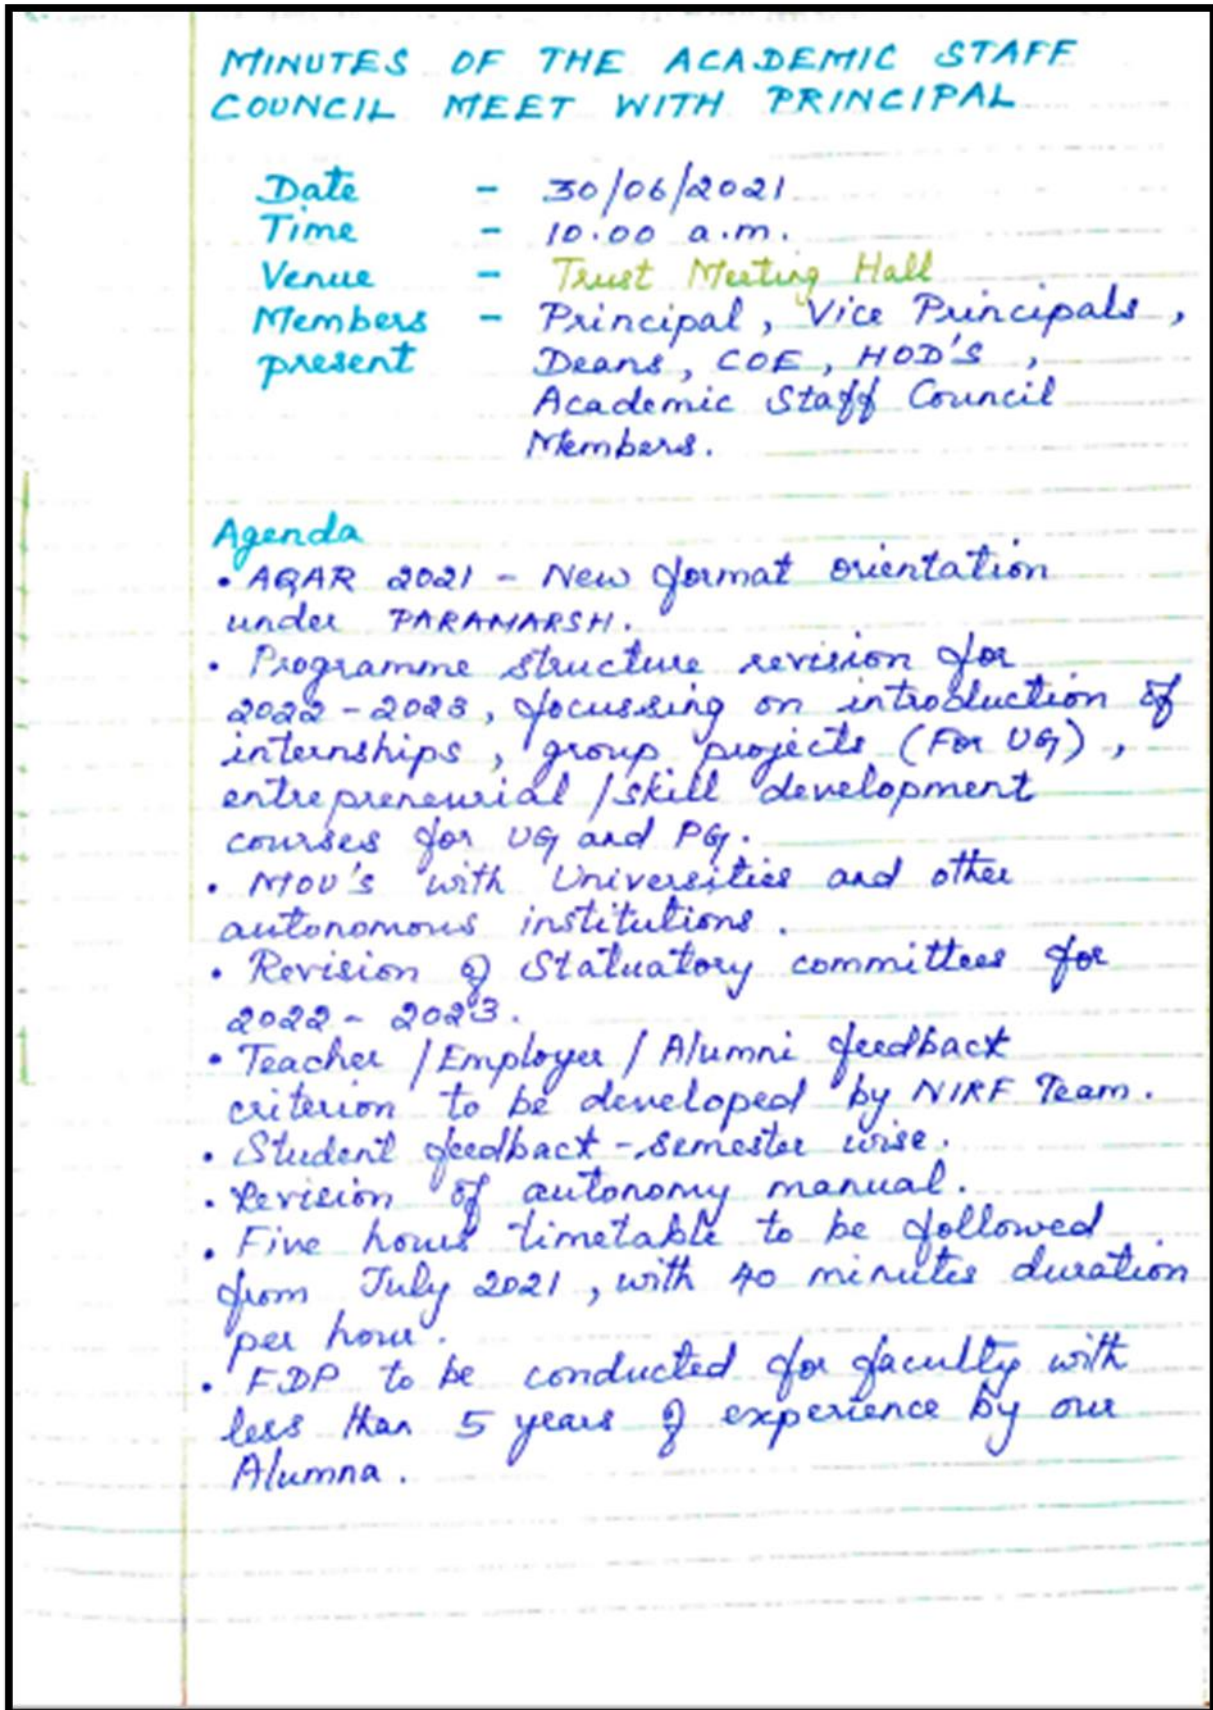 MINUTES OF THE ACADEMIC STAFF
COUNCIL MEET WITH PRINCIPAL
Date - 30/06/2021
Time - 10.00 a.m.
Venue - Trust Meeting Hall
Members - Principal, Vice Principals,
present Deans, COE, HOD'S,
Academic Staff Council
Members.
Agenda
• AQAR 2021 - New format orientation
under PARAMARSH.
• Programme structure revision for
2022-2023, focussing on introduction of
internships, group projects (For UG),
entrepreneurial/skill development
courses for UG and PG.
• MOU's with Universities and other
autonomous institutions.
• Revision of Statuatory committees for
2022-2023.
• Teacher/Employer/Alumni feedback
criterion to be developed by NIRF Team.
• Student feedback - semester wise.
• Revision of autonomy manual.
• Five hours timetable to be followed
from July 2021, with 40 minutes duration
per hour.
• FDP to be conducted for faculty with
less than 5 years of experience by our
Alumna.